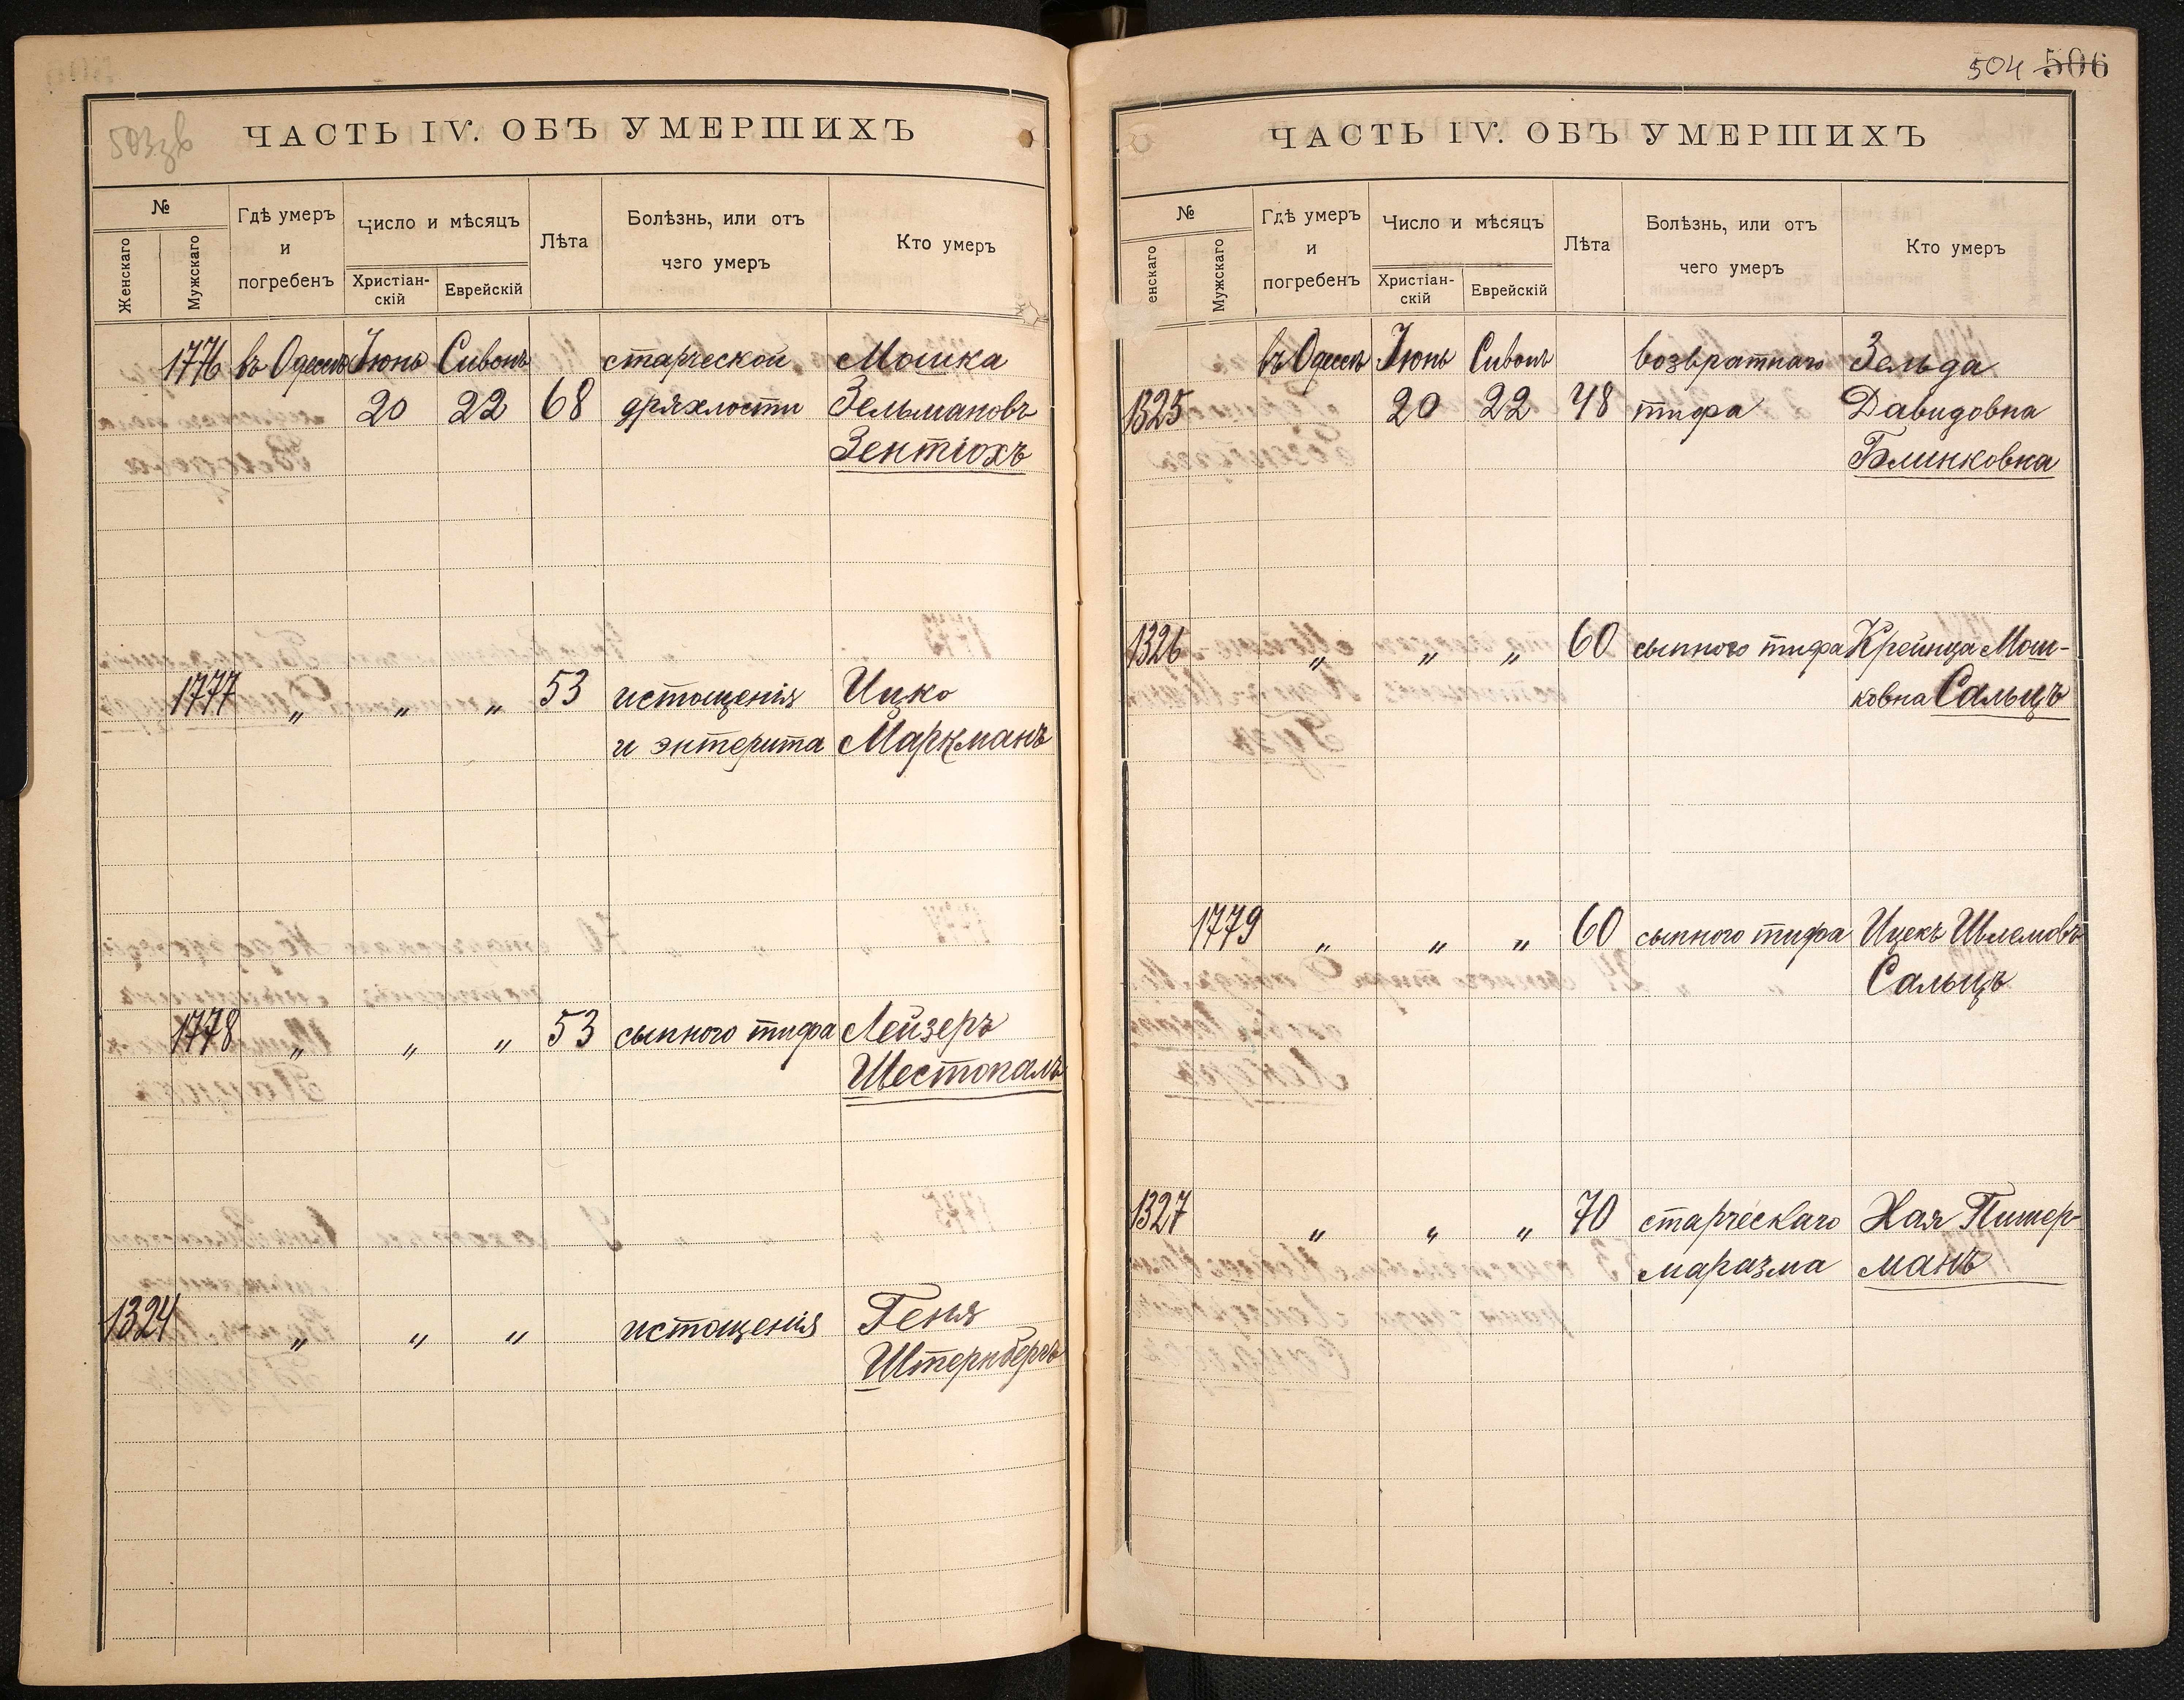 503зв
ЧАСТЬ IV. ОБЪ УМЕРШИХЪ
№
Женскаго
Мужскаго
Гдѣ умеръ
и
погребенъ
Число и мѣсяцъ
Христіан-
скій
Еврейскій
Лѣта
Болѣзнь, или отъ
чего умеръ
Кто умеръ
1776 въ Одессѣ Іюнь Сивонъ старческой Мошка
20 22 68 дряхлости Зельмановъ
Зентюхъ
1777 „ „ „ 53 истощенія Ицко
и энтерита Маркманъ
1778 „ „ „ 53 сыпного тифа Лейзеръ
Шестопалъ
1324 „ „ „ истощенія Геня
Штернбергъ
504 506
ЧАСТЬ IV. ОБЪ УМЕРШИХЪ
№
енскаго
Мужскаго
Гдѣ умеръ
и
погребенъ
Число и мѣсяцъ
Христіан-
скій
Еврейскій
Лѣта
Болѣзнь, или отъ
чего умеръ
Кто умеръ
въ Одессѣ Іюнь Сивонъ возвратнаго Зельда
1325 20 22 48 тифа Давидовна
Блинковна
1326 „ „ „ 60 сыпного тифа Крейнца Мош-
ковна Сальцъ
1779 „ „ „ 60 сыпного тифа Ицекъ Шлемовъ
Сальцъ
1327 „ „ „ 70 старческаго Хая Пимер-
маразма манъ